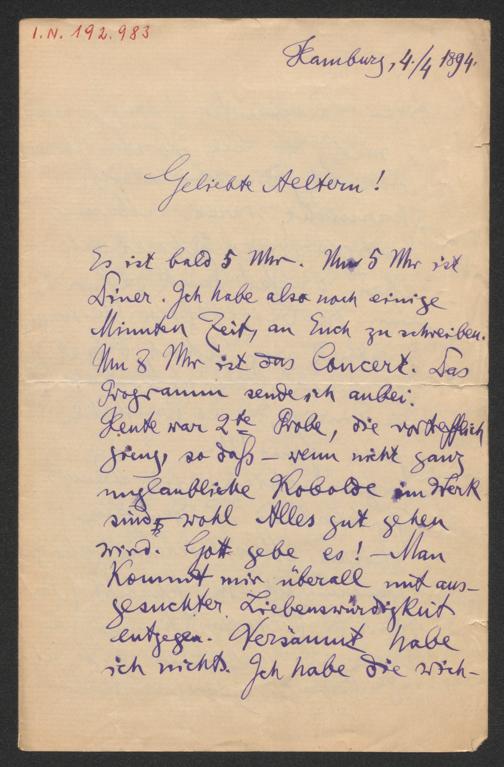 I.N. 192.983
Hamburg, 4./4 1894.
Geliebte Aeltern!
Es ist bald 5 Uhr. Um 5 Uhr ist
Diner. Ich habe also noch einige
Minuten Zeit, an Euch zu schreiben.
Um 8 Uhr ist das Concert. Das
Programm sende ich anbei.
Heute war 2te Probe, die vortrefflich
gieng, so daß – wenn nicht ganz
unglaubliche Kobolde im Werk
sind – wohl Alles gut gehen
wird. Gott gebe es! – Man
kommt mir überall mit aus-
gesuchter Liebenswürdigkeit
entgegen. Versäumt habe
ich nichts. Ich habe die wich-